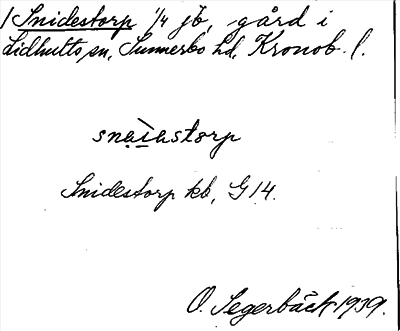 / Snidestorp 1/4 jb, gård i
Lidhults sn, Sunnerbo hd, Kronob. l.
snaìastorp
Snidestorp kb, G 14.
O. Segerbäck 1939.